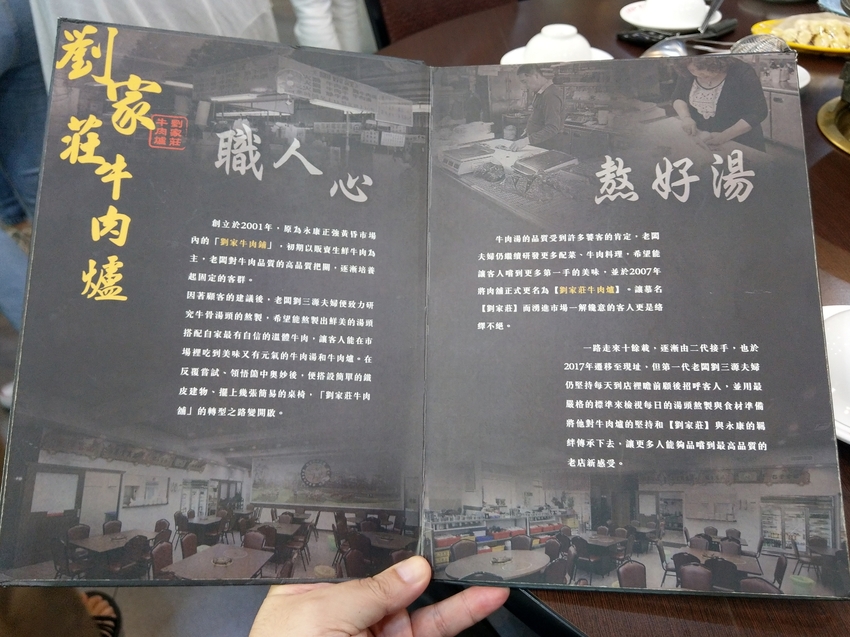 劉家莊牛肉爐
劉家莊
牛肉爐
職人心
創立於2001年，原為永康正強黃昏市場
內的「劉家牛肉舖」，初期以販賣生鮮牛肉為
主，老闆對牛肉品質的高品質把關，逐漸培養
起固定的客群。
因著顧客的建議後，老闆劉三源夫婦便致力研
究牛骨湯頭的熬製，希望能熬製出鮮美的湯頭
搭配自家最有自信的溫體牛肉，讓客人能在市
場裡吃到美味又有元氣的牛肉湯和牛肉爐。在
反覆嘗試、領悟箇中奧妙後，便搭設簡單的鐵
皮建物、擺上幾張簡易的桌椅，「劉家莊牛肉
舖」的轉型之路變開啟。
熬好湯
牛肉湯的品質受到許多饕客的肯定，老闆
夫婦仍繼續研發更多配菜、牛肉料理，希望能
讓客人嚐到更多第一手的美味，並於2007年
將肉舖正式更名為【劉家莊牛肉爐】。讓慕名
【劉家莊】而湧進市場一解饞意的客人更是絡
繹不絕。
一路走來十餘載，逐漸由二代接手，也於
2017年遷移至現址，但第一代老闆劉三源夫婦
仍堅持每天到店裡瞻前顧後招呼客人，並用最
嚴格的標準來檢視每日的湯頭熬製與食材準備
將他對牛肉爐的堅持和【劉家莊】與永康的羈
絆傳承下去，讓更多人能夠品嚐到最高品質的
老店新感受。